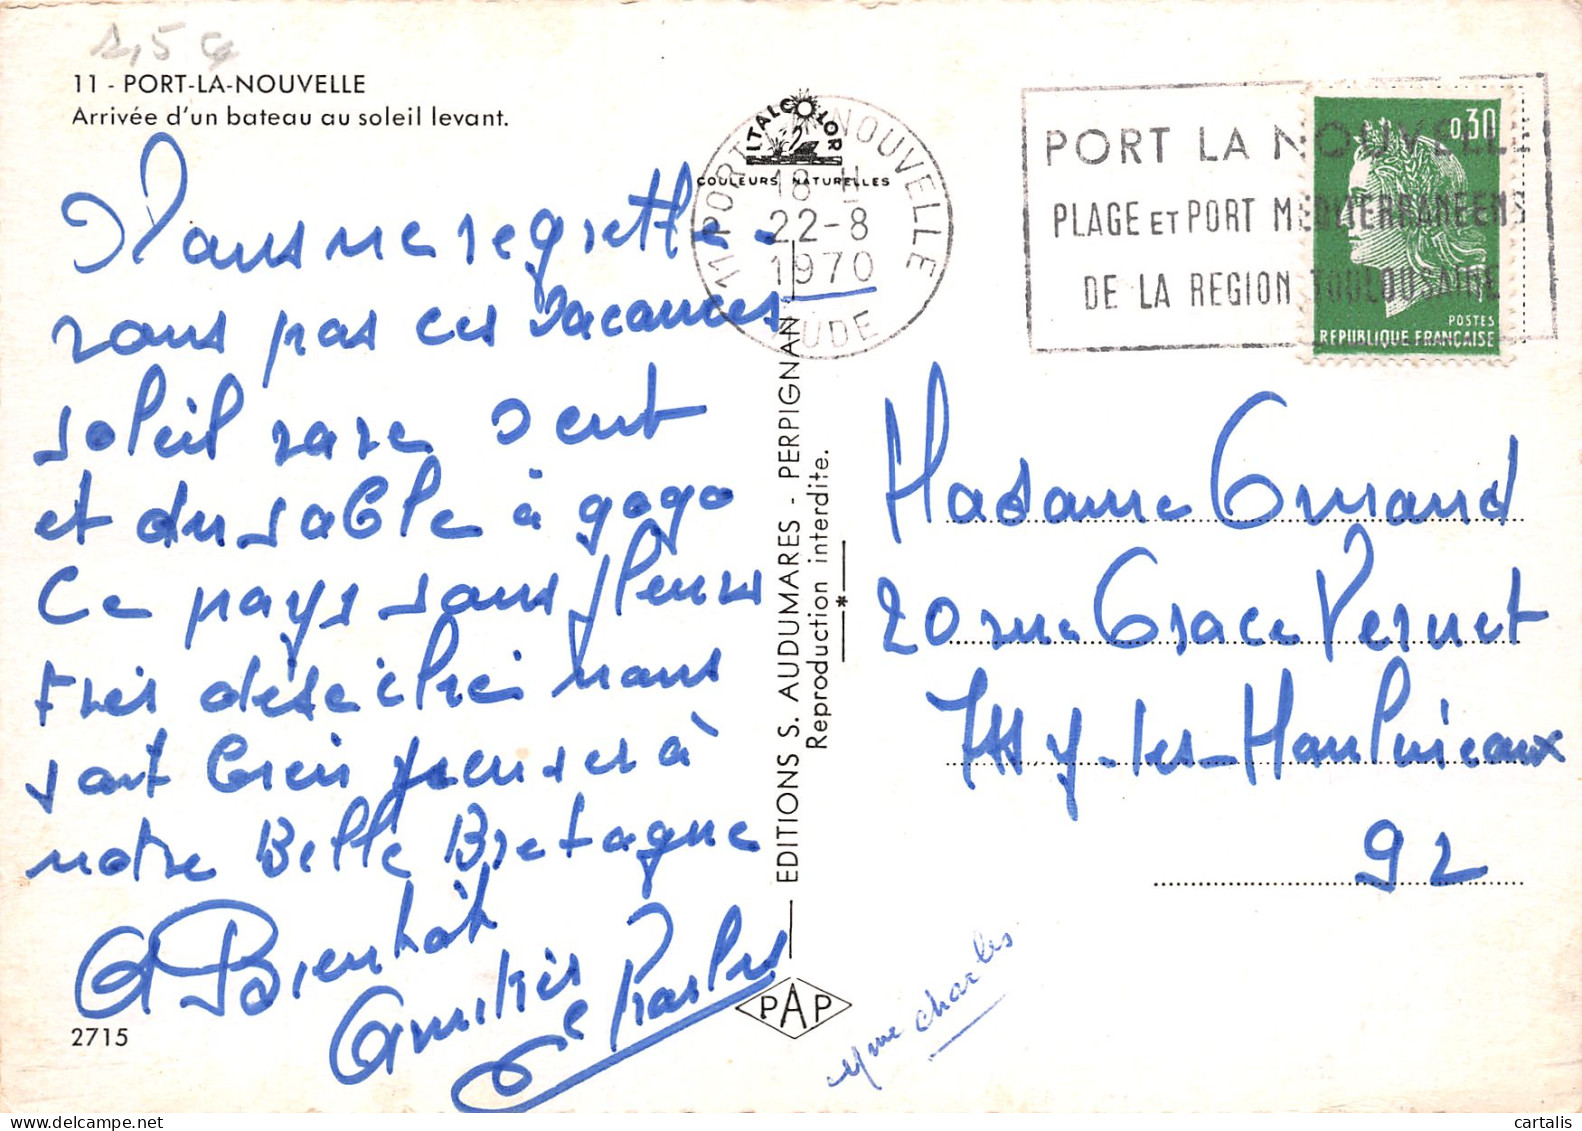 1,5 €
11 - PORT-LA-NOUVELLE
Arrivée d'un bateau au soleil levant.
Nous ne regrette
rons pas ces vacances
soleil rare vent
et du sable à gogo
Ce pays sans fleurs
très déséché nous
fait bien penser à
notre Belle Bretagne
A Bientôt
Amitiés
Charles
2715
ITALCOLOR
COULEURS NATURELLES
11 PORT LA NOUVELLE
18 H
22-8
1970
AUDE
EDITIONS S. AUDUMARES - PERPIGNAN
Reproduction interdite.
PAP
PORT LA NOUVELLE
PLAGE ET PORT MEDITERRANEENS
DE LA REGION TOULOUSAINE
0,30
POSTES
REPUBLIQUE FRANCAISE
Madame
20 rue Horace Vernet
Issy-les-Moulineaux
92
Mme Charles
cartalis